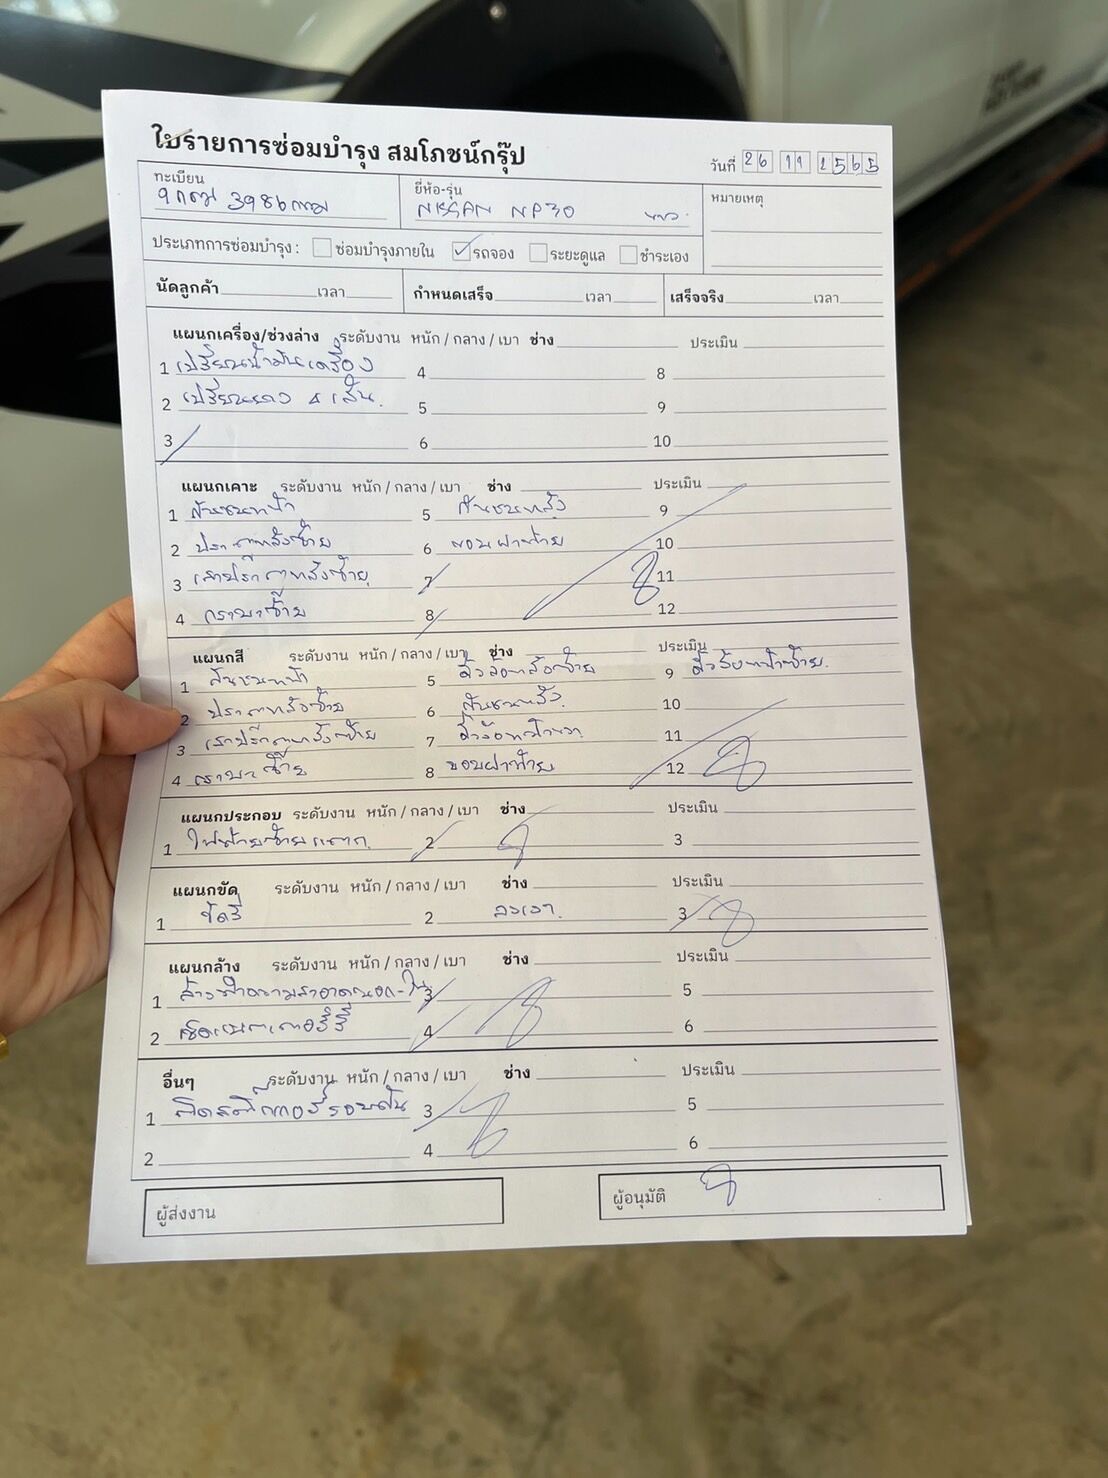 ใบรายการซ่อมบำรุง สมโภชน์กรุ๊ป
วันที่ 26 11 2565
ทะเบียน
3986 กทม
ยี่ห้อ-รุ่น
NISSAN
หมายเหตุ
ประเภทการซ่อมบำรุง : ซ่อมบำรุงภายใน รถจอง ระยะดูแล ชำระเอง
นัดลูกค้า เวลา กำหนดเสร็จ เวลา เสร็จจริง เวลา
แผนกเครื่อง/ช่วงล่าง ระดับงาน หนัก / กลาง / เบา ช่าง ประเมิน
1 เปลี่ยนน้ำมันเครื่อง 4 8
2 เปลี่ยนยาง 4 เส้น. 5 9
3 6 10
แผนกเคาะ ระดับงาน หนัก / กลาง / เบา ช่าง ประเมิน
1 กันชนหน้า 5 กันชนหลัง 9
2 ประตูหลังซ้าย 6 ขอบฝาท้าย 10
3 เสาประตูหลังซ้าย 7 11
4 กระบะซ้าย 8 12
แผนกสี ระดับงาน หนัก / กลาง / เบา ช่าง ประเมิน
1 กันชนหน้า 5 คิ้วล้อหลังซ้าย 9 คิ้วล้อหน้าซ้าย.
2 ประตูหลังซ้าย 6 กันชนหลัง. 10
3 เสาประตูหลังซ้าย 7 คิ้วล้อหน้าขวา 11
4 กระบะซ้าย 8 ขอบฝาท้าย 12
แผนกประกอบ ระดับงาน หนัก / กลาง / เบา ช่าง ประเมิน
1 ไฟท้ายซ้ายแตก. 2 3
แผนกขัด ระดับงาน หนัก / กลาง / เบา ช่าง ประเมิน
1 ขัดสี 2 ลงเงา. 3
แผนกล้าง ระดับงาน หนัก / กลาง / เบา ช่าง ประเมิน
1 ล้างทำความสะอาดนอก-ใน 3 5
2 เช็คแบตเตอรี่ 4 6
อื่นๆ ระดับงาน หนัก / กลาง / เบา ช่าง ประเมิน
1 ติดสติ๊กเกอร์รอบคัน 3 5
2 4 6
ผู้ส่งงาน
ผู้อนุมัติ